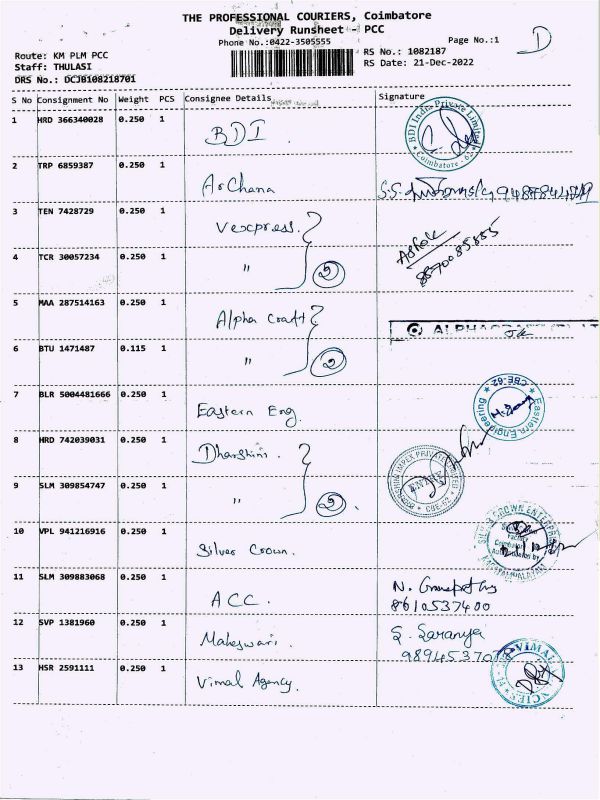 THE PROFESSIONAL COURIERS, Coimbatore
Delivery Runsheet - PCC
Phone No.:0422-3505555
Page No.:1
D
Route: KM PLM PCC
RS No.: 1082187
Staff: THULASI
RS Date: 21-Dec-2022
DRS No.: DCJB108218701
S No Consignment No Weight PCS Consignee Details Signature
1 HRD 366340028 0.250 1 BDI BDI India Private Limited Coimbatore - 62
2 TRP 6859387 0.250 1 Archana
3 TEN 7428729 0.250 1 Vexpress. Ashok
8870085855
4 TCR 30057234 0.250 1 " 2
5 MAA 287514163 0.250 1 Alpha Craft
6 BTU 1471487 0.115 1 " 2
7 BLR 5004481666 0.250 1 Eastern Eng. Eastern Engineering CBE-62
8 HRD 742039031 0.250 1 Dharshini
9 SLM 309854747 0.250 1 " 2 IMPEX PRIVATE LIMITED CBE-62
10 VPL 941216916 0.250 1 Silver Crown. SILVER CROWN ENTERPRISE
11 SLM 309883068 0.250 1 ACC. N.
8610537400
12 SVP 1381960 0.250 1 Maheswari. S. Saranya
13 HSR 2591111 0.250 1 Vimal Agency. VIMAL